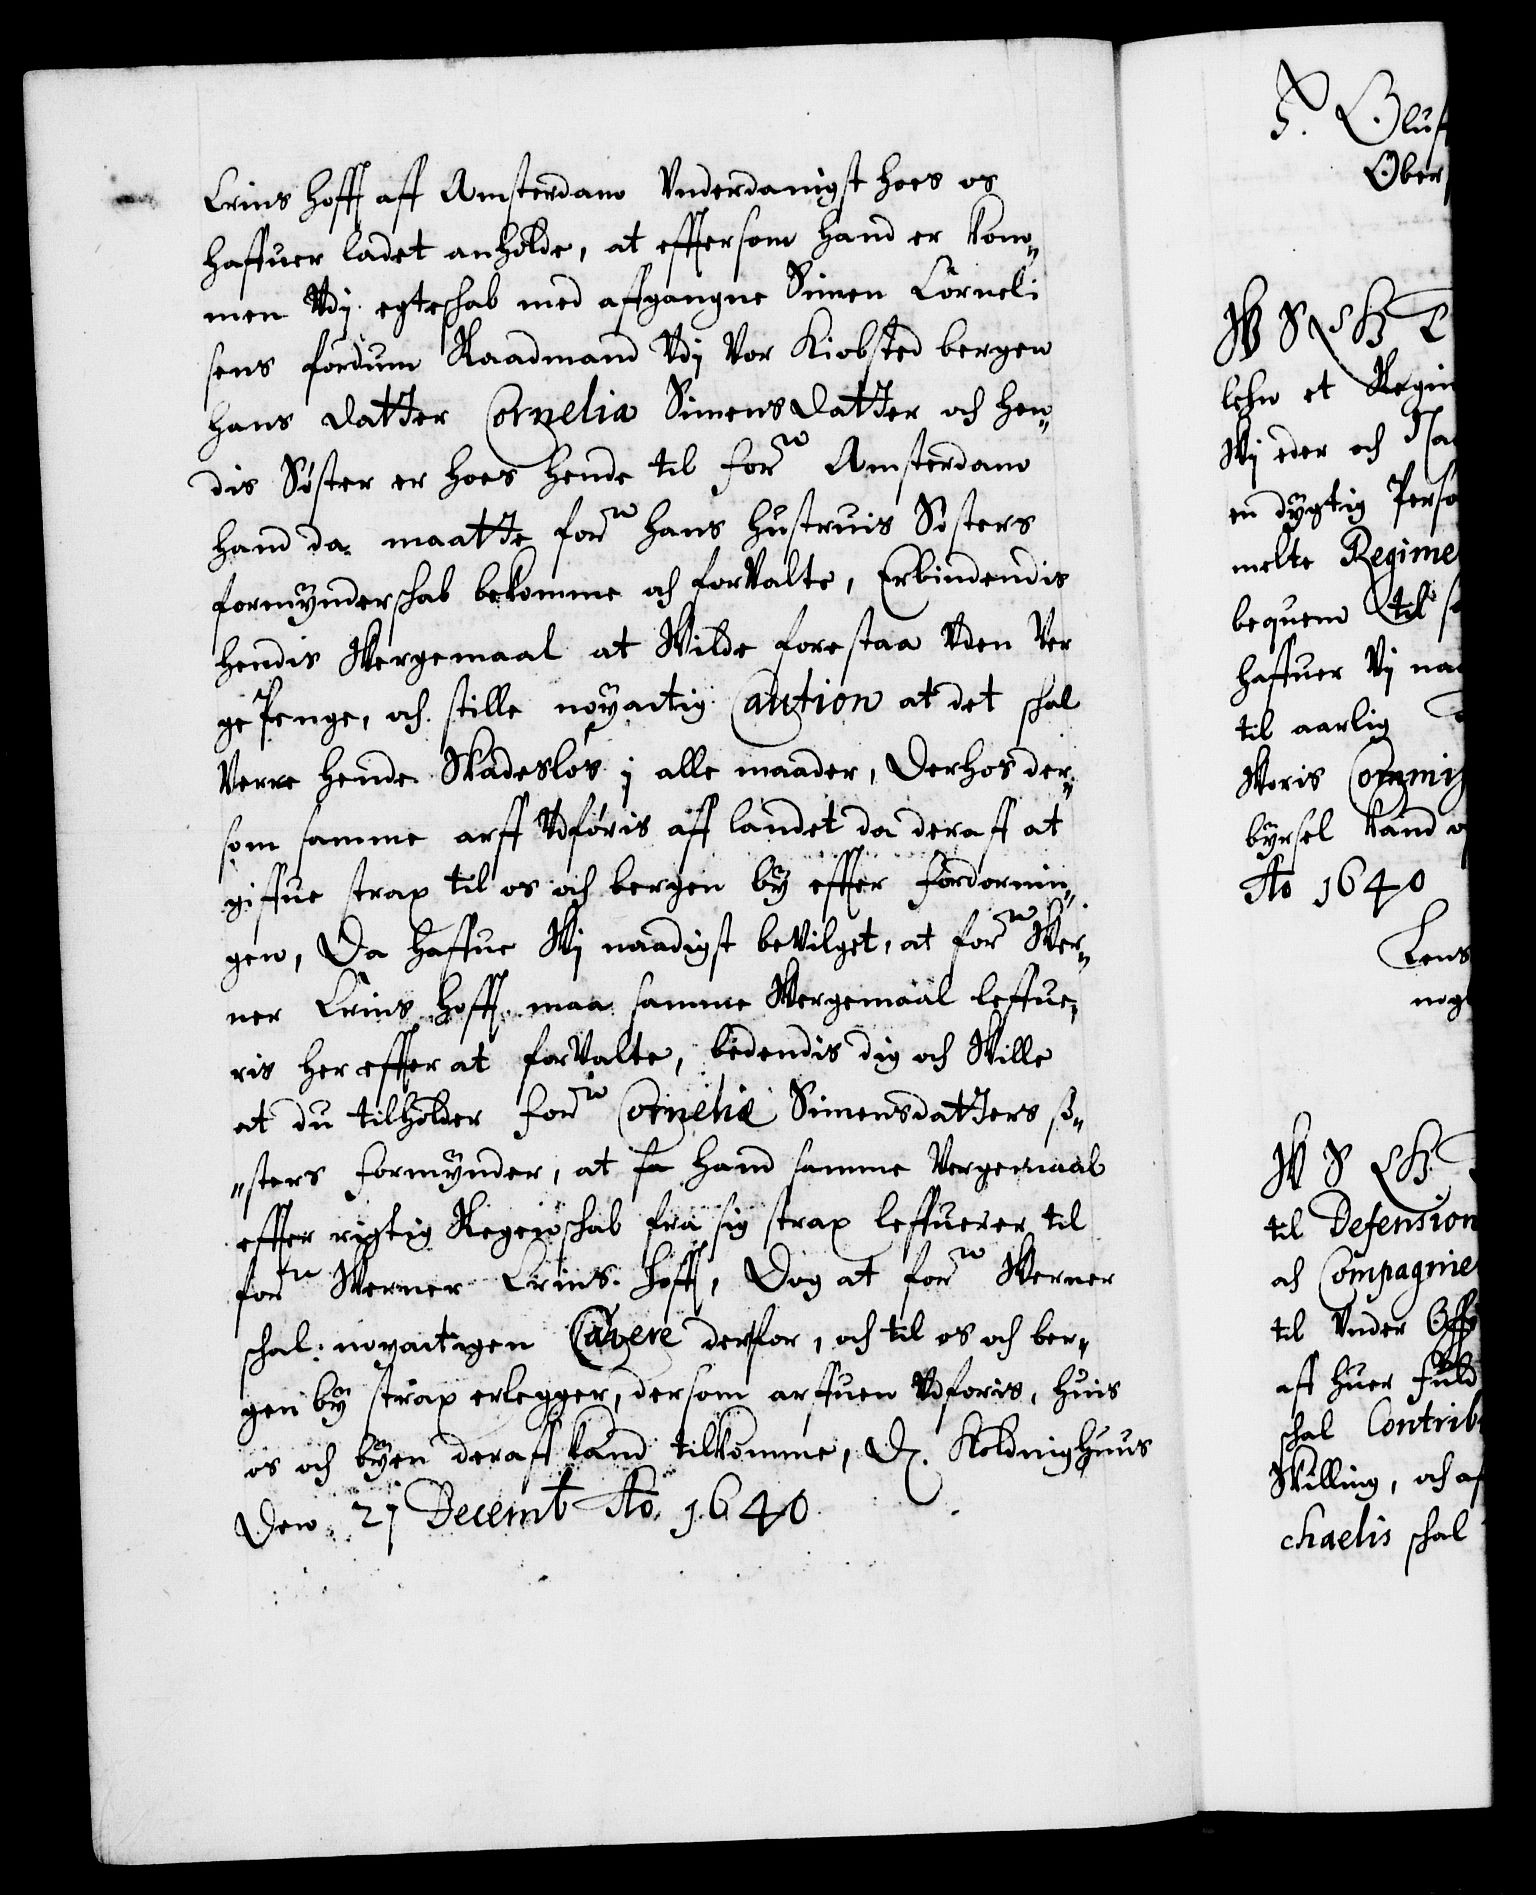 Crins Hoff aff Amsterdam Vnderdanigst hoes os
haffuer ladet anholde, at effersom hand er kom„
men Vdj egteschab med affgangne Simen Corneli
sens fordum Raadmand Vdj Vor Kiobsted bergen
hans datter Cornelia Simensdatter och hen„
dis Søster er hoes hende til forn Amsterdam
hand da maatte forn hans hustruis Søsters
formynderschab bekomme och forvalte, Erbindendis
hendis Wergemaal at Wilde forestaa Vden Ver
gepenge, och stille nøyactig Caution at det schal
Verre hende Skadesløs j alle maader, Derhos der„
som samme arff Vdføris aff landet da deraff at
giffue strax til os och bergen by effter fordornin„
gen, Da haffue Wj naadigst beVilget, at forn Wer„
ner Crins Hoff maa samme Wergemaal leffue„
ris her effter at forValte, bedendis dig och Wille
at du tilholder forn Corneliæ Simensdatters sø„
„sters formynder, at hand samme Vergemaal
effter rigtig Regenschab fra sig strax leffuerer til
forn Werner Crins Hoff, Dog at forn Werner
schal nøyactigen Cavere derfor, och til os och ber„
gen by strax erlegger, dersom arffuen Vdføris, huis
os och byen deraff kand tilkomme, D. Koldinghuus
Den 27 Decemb Ao 1640
T. Oluf
Ober
W S G V T
lehn et Regim
Wj eder och
en dygtig Perso
melte Regime
bequem til
haffuer Vj naa
til aarlig
Woris Commis
byrsel kand
Ao 1640
Lens
nog
W S G V
til Defension
och Compagnie
til Vnder Offi
aff huer fuld
schal Contrib
Skilling, och af
chaelis schal